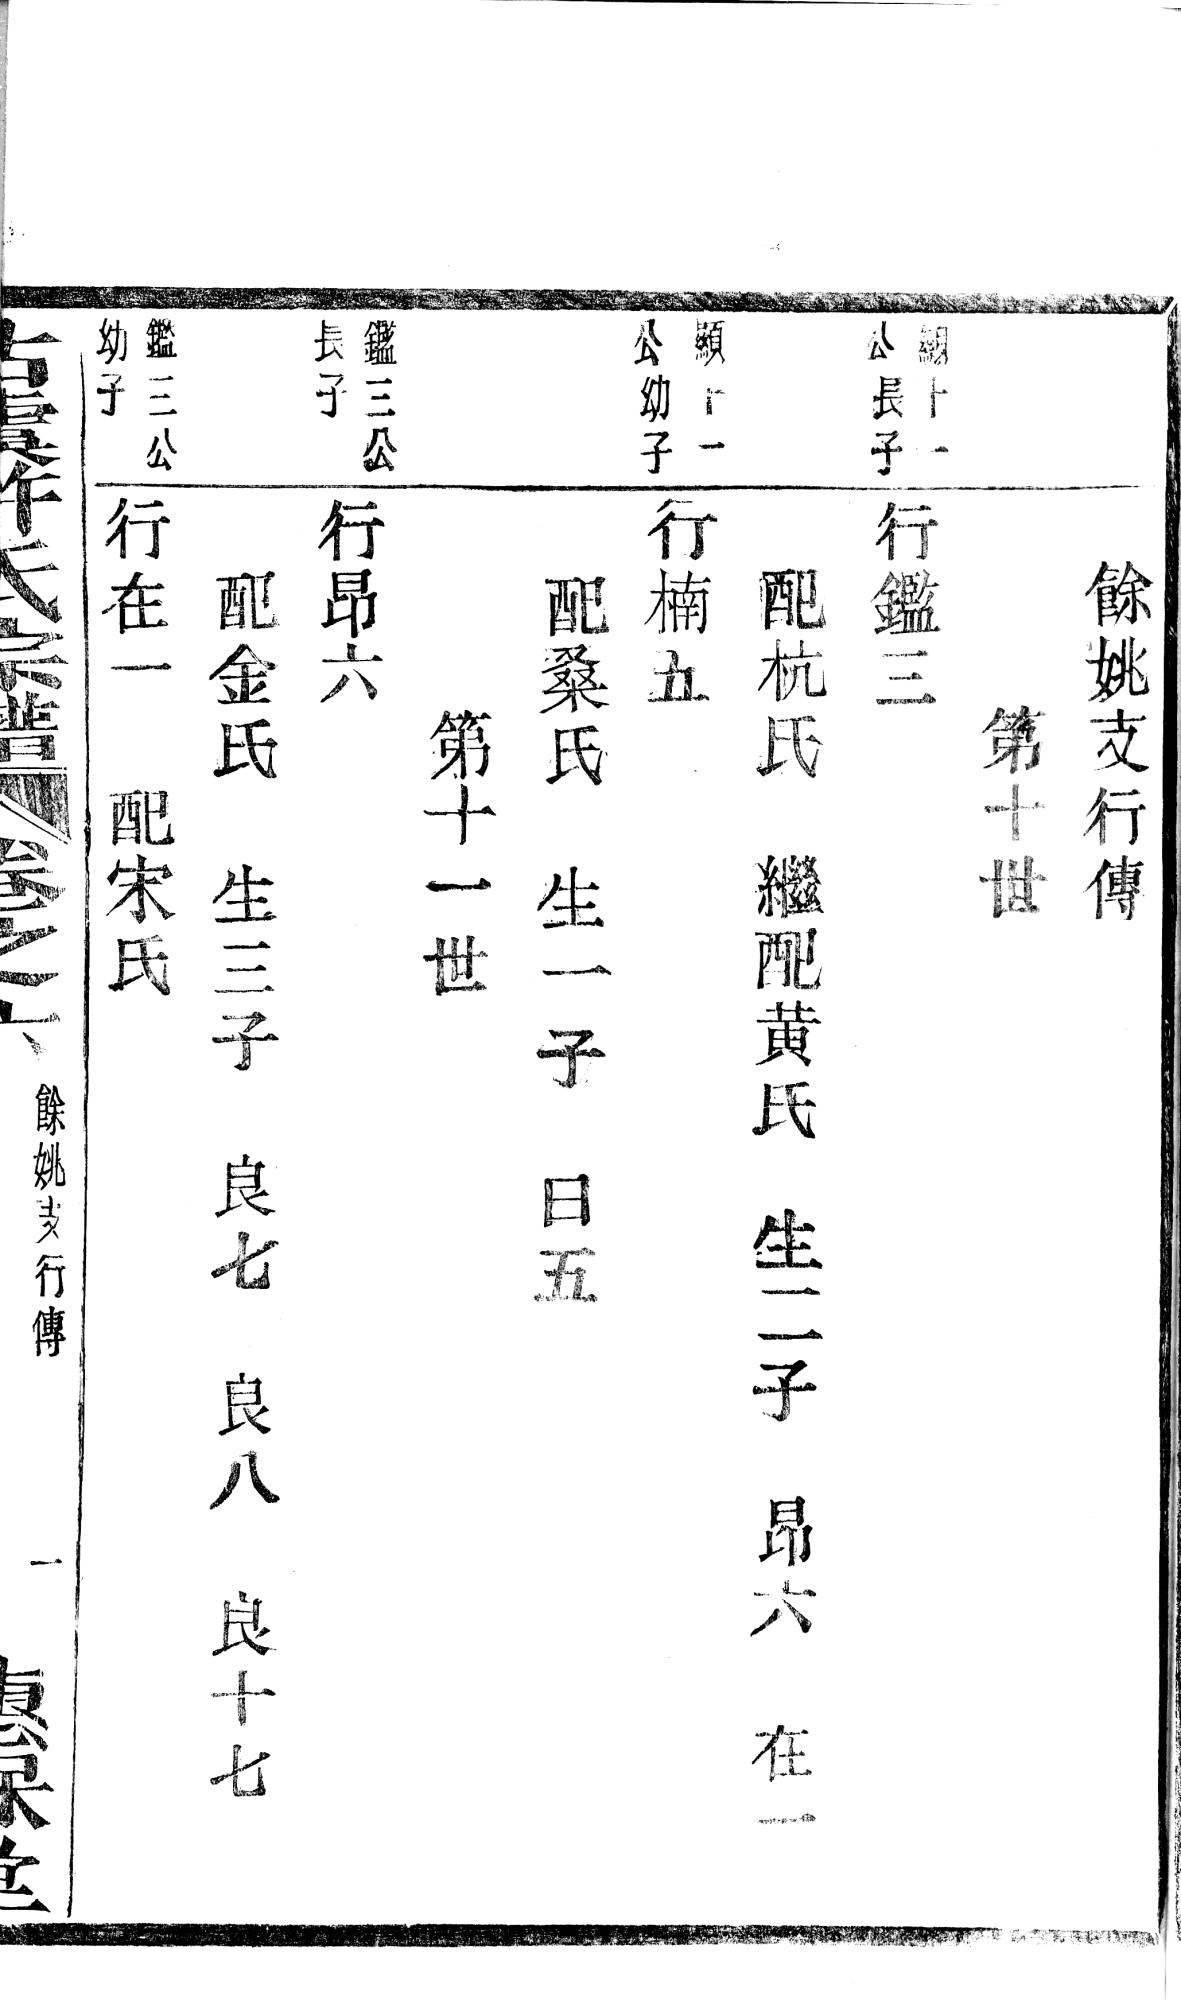 餘姚支行傳
第十世
顯十一
公長子
行鑑三
配杭氏　繼配黃氏　生二子　昂六　在一
顯十一
公幼子
行楠五
配桑氏　生一子　日五
第十一世
鑑三公
長子
行昂六
配金氏　生三子　良七　良八　良十七
鑑三公
幼子
行在一　配宋氏
古虞許氏宗譜　卷之六　餘姚支行傳　一　惠保堂